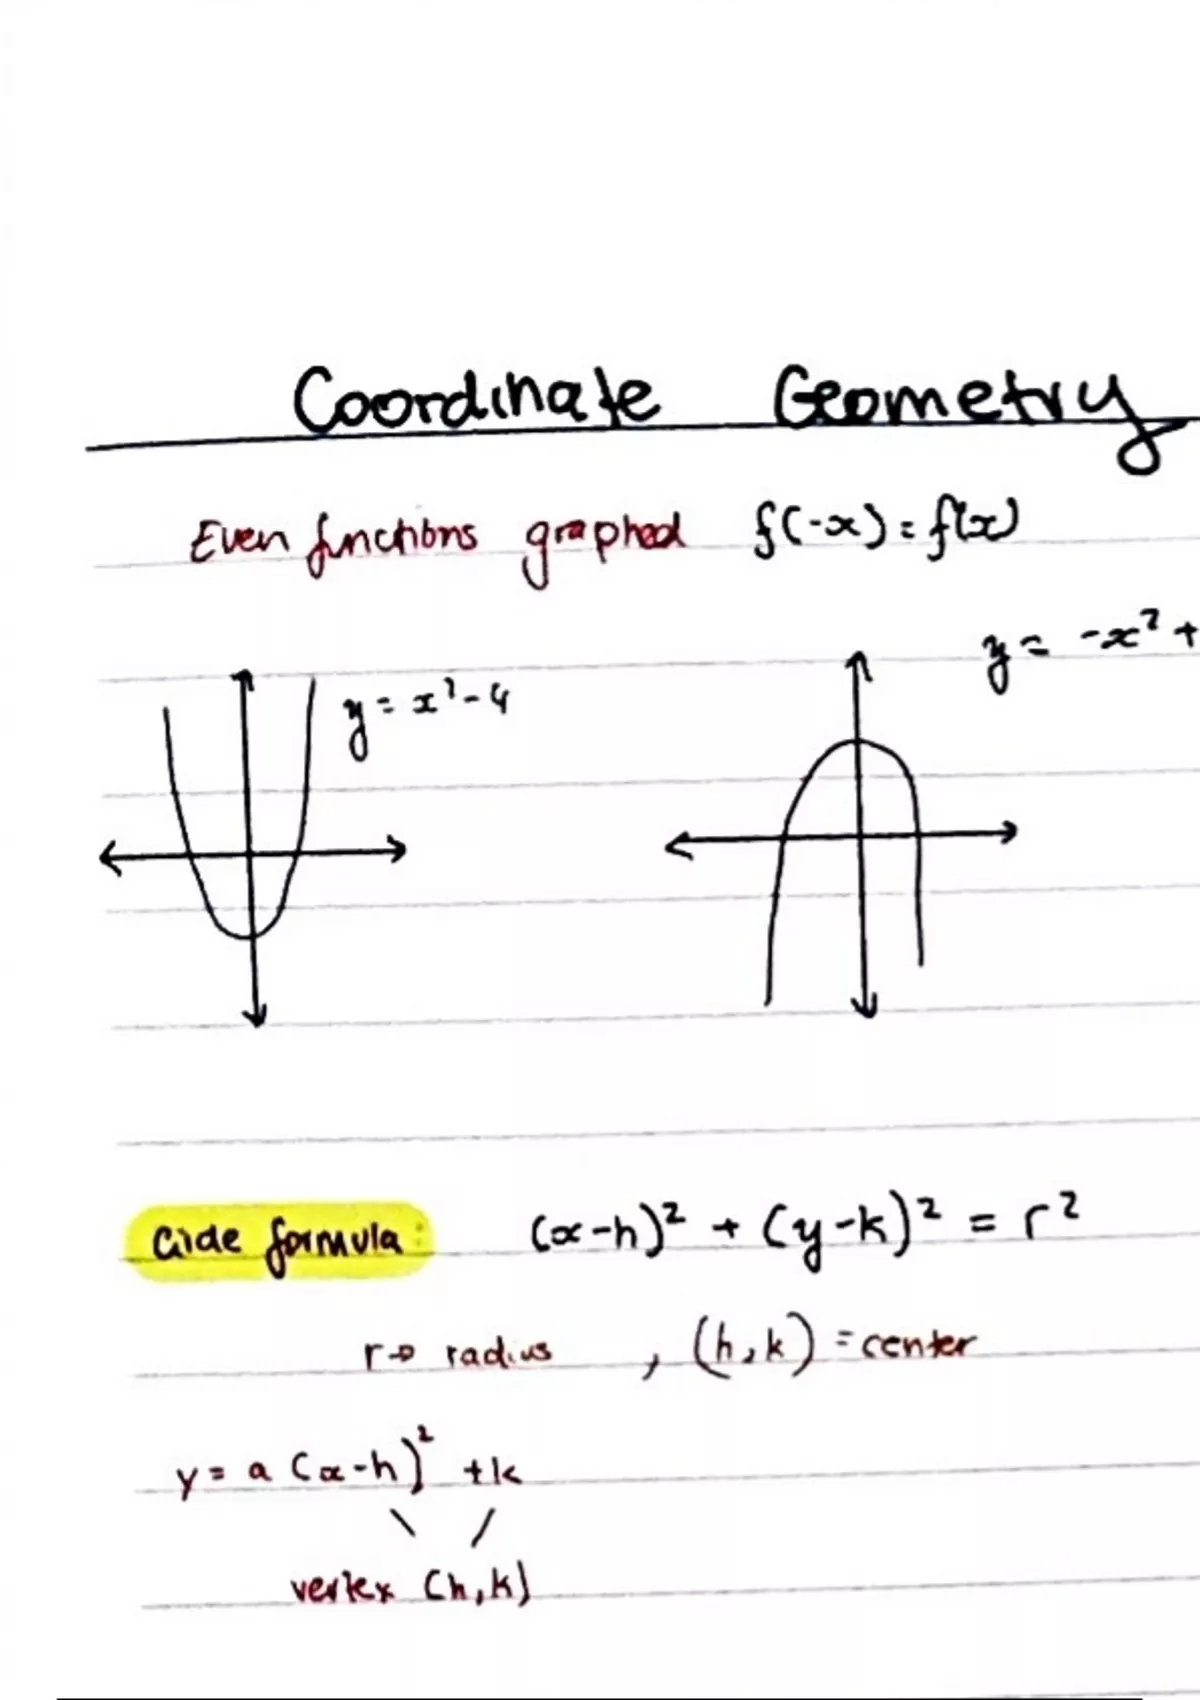 Coordinate Geometry
Even functions graphed f(-x) = f(x)
y = x² - 4
y = -x² +
Circle formula: (x-h)² + (y-k)² = r²
r → radius , (h,k) = center
y = a (x-h)² + k
vertex (h,k)